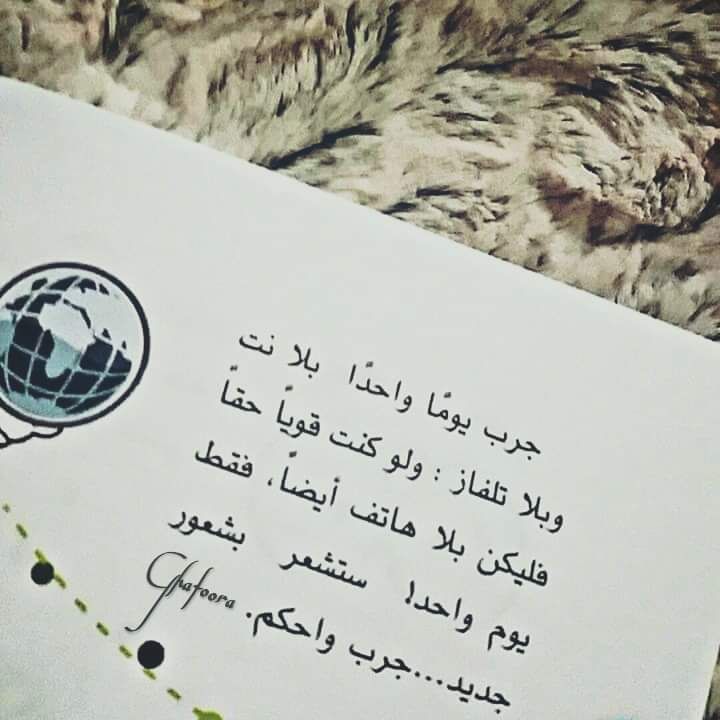 جرب يومًا واحدًا بلا نت
وبلا تلفاز : ولو كنت قوياً حقاً
فليكن بلا هاتف أيضاً، فقط
يوم واحد! ستشعر بشعور
جديد...جرب واحكم.
Ghafoora